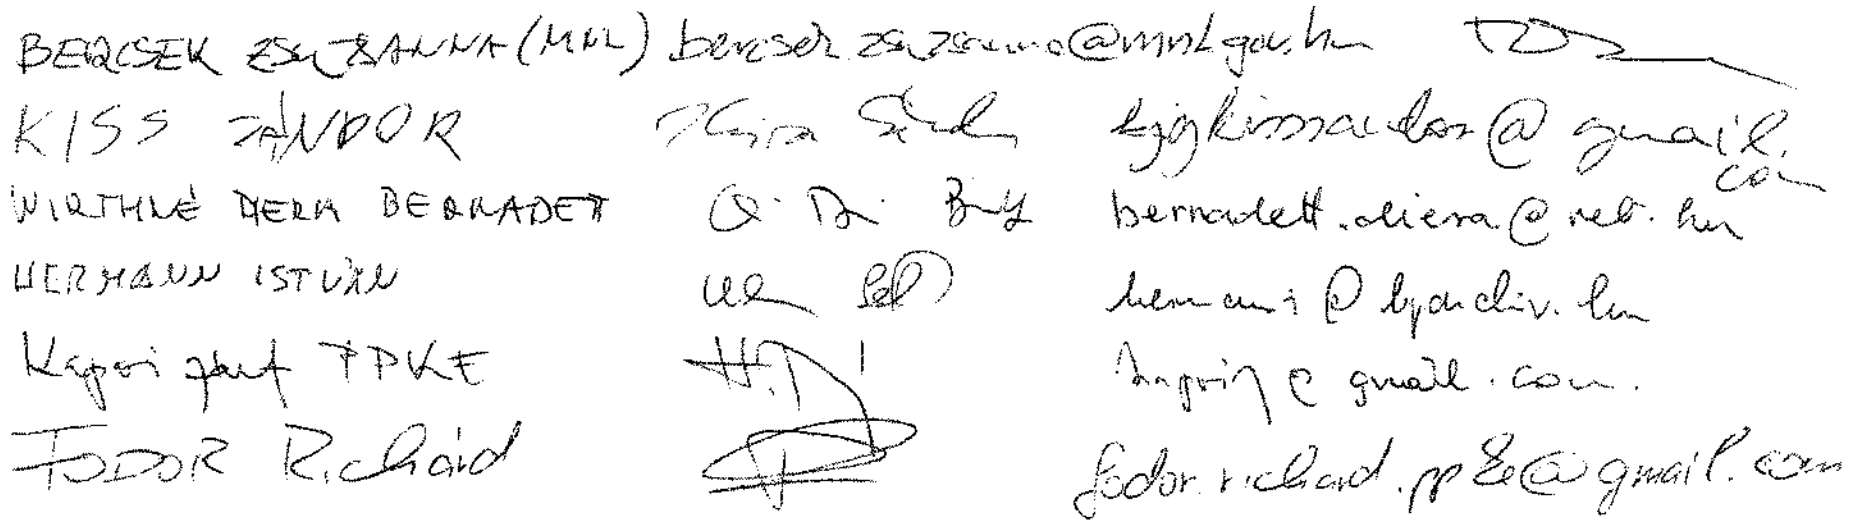 BERCSEK ZSUZSANNA (MNL) bercsek.zsuzsanna@mnl.gov.hu
KISS SÁNDOR Kiss Sándor kjgkisssandor@gmail.com
WIRTHNÉ DIERA BERNADETT bernadett.diera@reb.hu
HERMANN ISTVÁN hermanni@bparchiv.hu
Kapori PPKE @gmail.com
FODOR Richárd fodor.richard.ppke@gmail.com